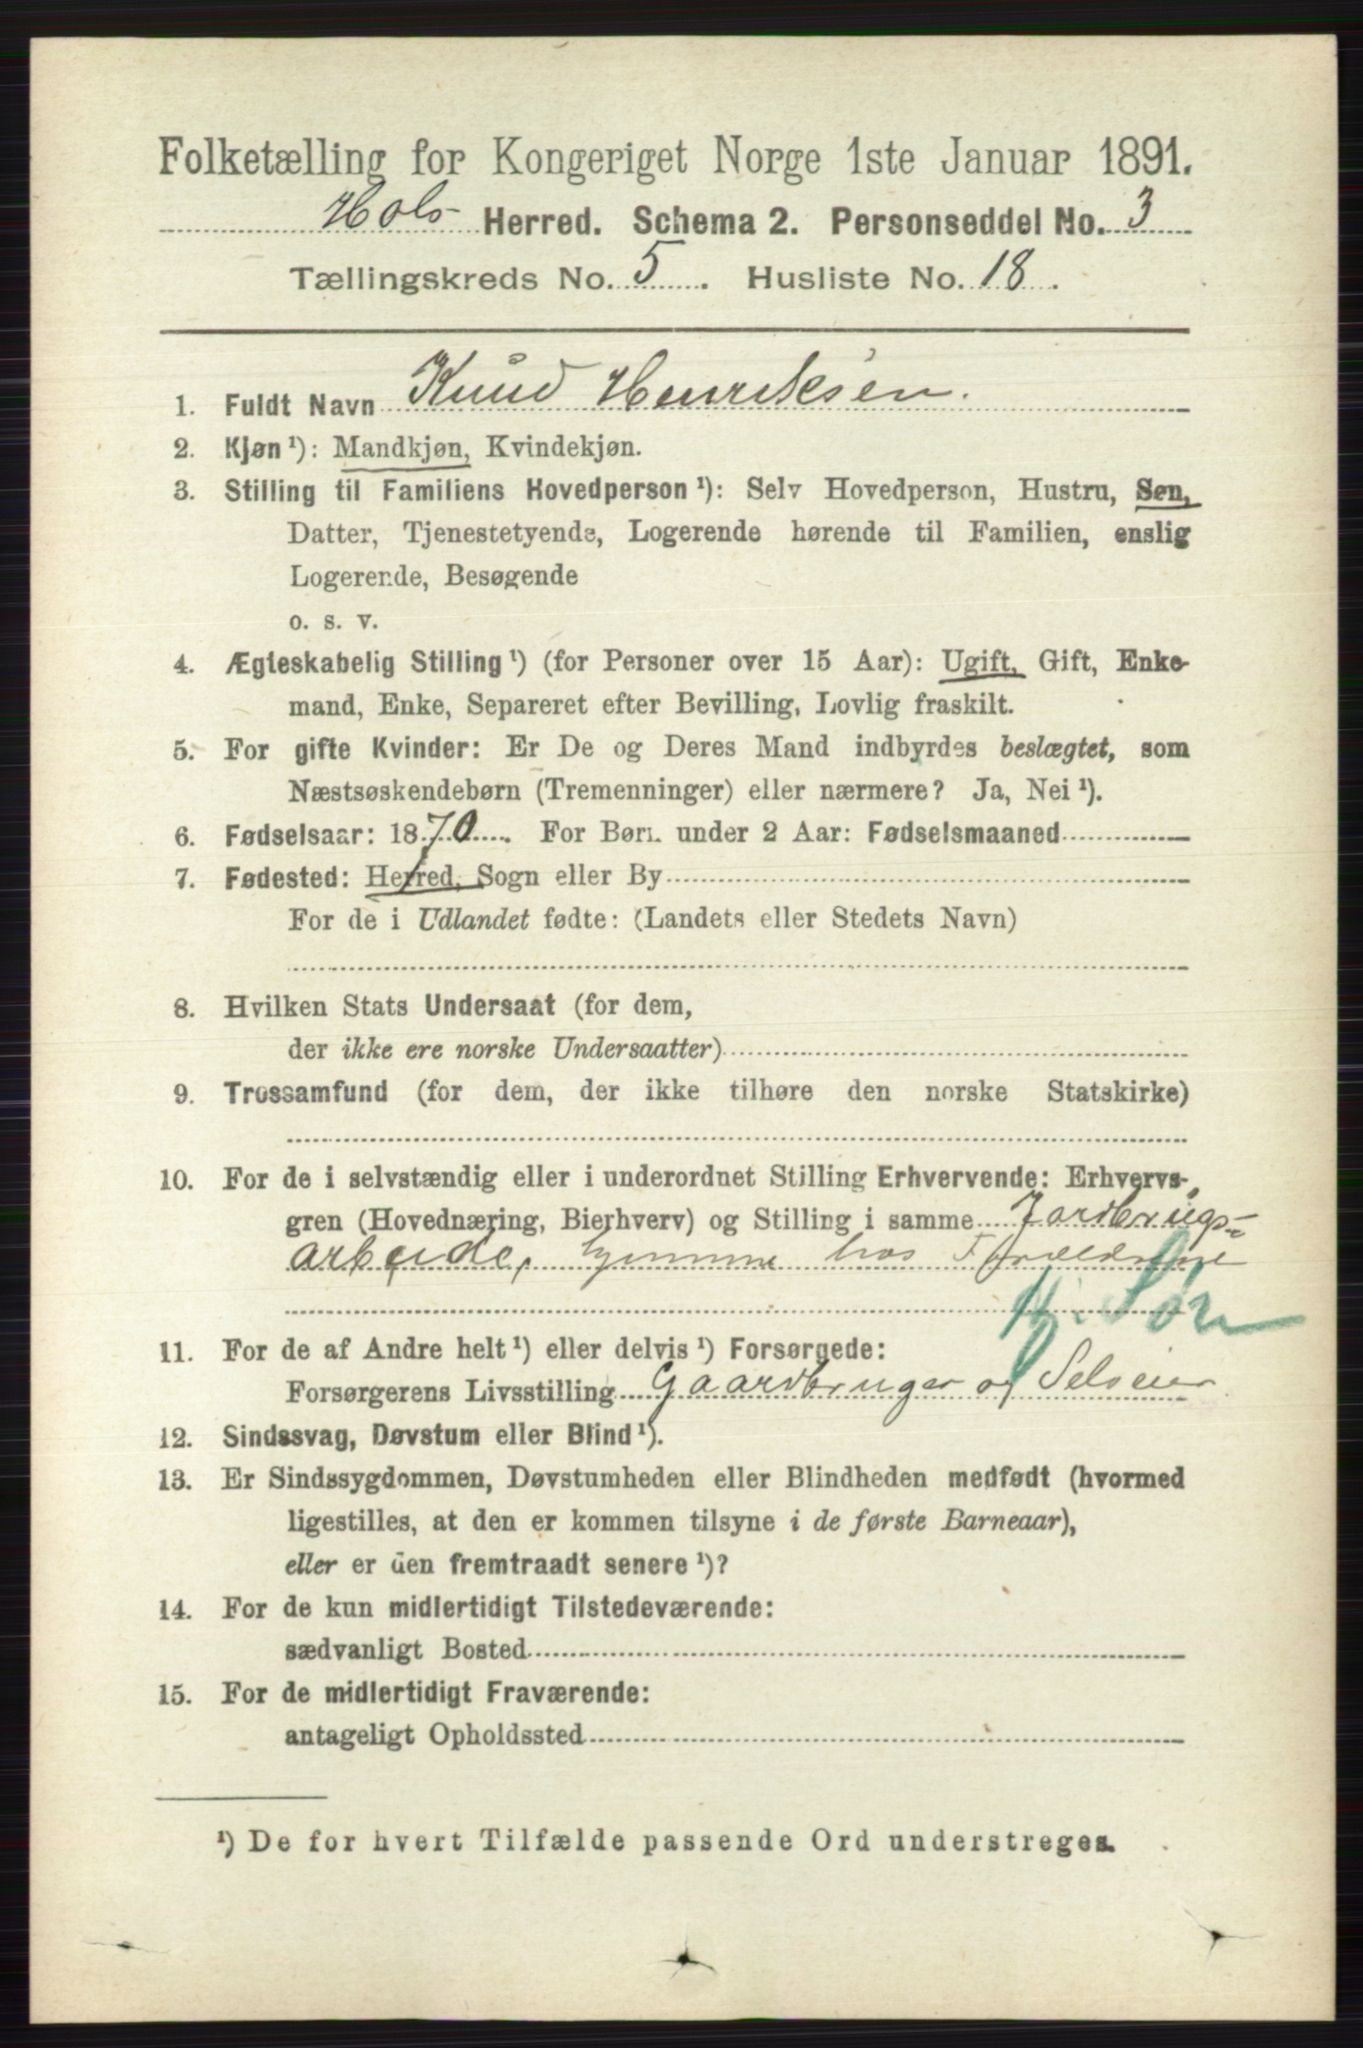 Folketælling for Kongeriget Norge 1ste Januar 1891.
Hols Herred. Schema 2. Personseddel No. 3
Tællingskreds No. 5. Husliste No. 18.
1. Fuldt Navn Knud Henriksen.
2. Kjøn ¹): Mandkjøn, Kvindekjøn.
3. Stilling til Familiens Hovedperson ¹): Selv Hovedperson, Hustru, Søn,
Datter, Tjenestetyende, Logerende hørende til Familien, enslig
Logerende, Besøgende
o. s. v.
4. Ægteskabelig Stilling ¹) (for Personer over 15 Aar): Ugift, Gift, Enke-
mand, Enke, Separeret efter Bevilling, Lovlig fraskilt.
5. For gifte Kvinder: Er De og Deres Mand indbyrdes beslægtet, som
Næstsøskendebørn (Tremenninger) eller nærmere? Ja, Nei ¹).
6. Fødselsaar: 1870. For Børn under 2 Aar: Fødselsmaaned
7. Fødested: Herred, Sogn eller By
For de i Udlandet fødte: (Landets eller Stedets Navn)
8. Hvilken Stats Undersaat (for dem,
der ikke ere norske Undersaatter)
9. Trossamfund (for dem, der ikke tilhøre den norske Statskirke)
10. For de i selvstændig eller i underordnet Stilling Erhvervende: Erhvervs-
gren (Hovednæring, Bierhverv) og Stilling i samme Jordbrugs-
arbeide, hjemme hos Forældrene
Hj. Søn
11. For de af Andre helt ¹) eller delvis ¹) Forsørgede:
Forsørgerens Livsstilling Gaardbruger og Selveier
12. Sindssvag, Døvstum eller Blind ¹).
13. Er Sindssygdommen, Døvstumheden eller Blindheden medfødt (hvormed
ligestilles, at den er kommen tilsyne i de første Barneaar),
eller er den fremtraadt senere ¹)?
14. For de kun midlertidigt Tilstedeværende:
sædvanligt Bosted
15. For de midlertidigt Fraværende:
antageligt Opholdssted
¹) De for hvert Tilfælde passende Ord understreges.